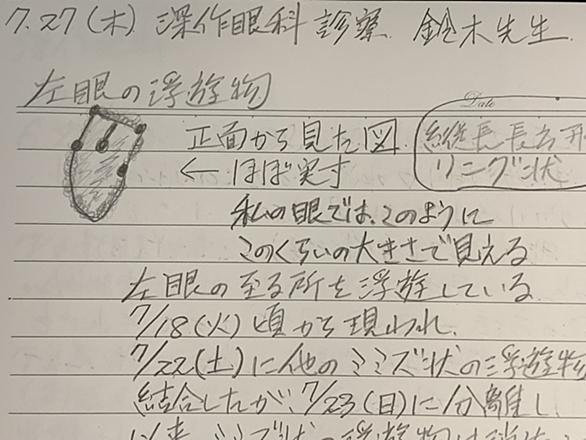 7.27(木) 深作眼科 診察 鈴木先生
左眼の浮遊物
Date
正面から見た図
縦長長方形
リング状
← ほぼ実寸
私の眼では、このように
このくらいの大きさで見える
左眼の至る所を浮遊している
7/18(火)頃から現われ、
7/22(土)に他のミミズ状の浮遊物
結合したが、7/23(日)に分離し、
以来、ミミズ状の浮遊物は